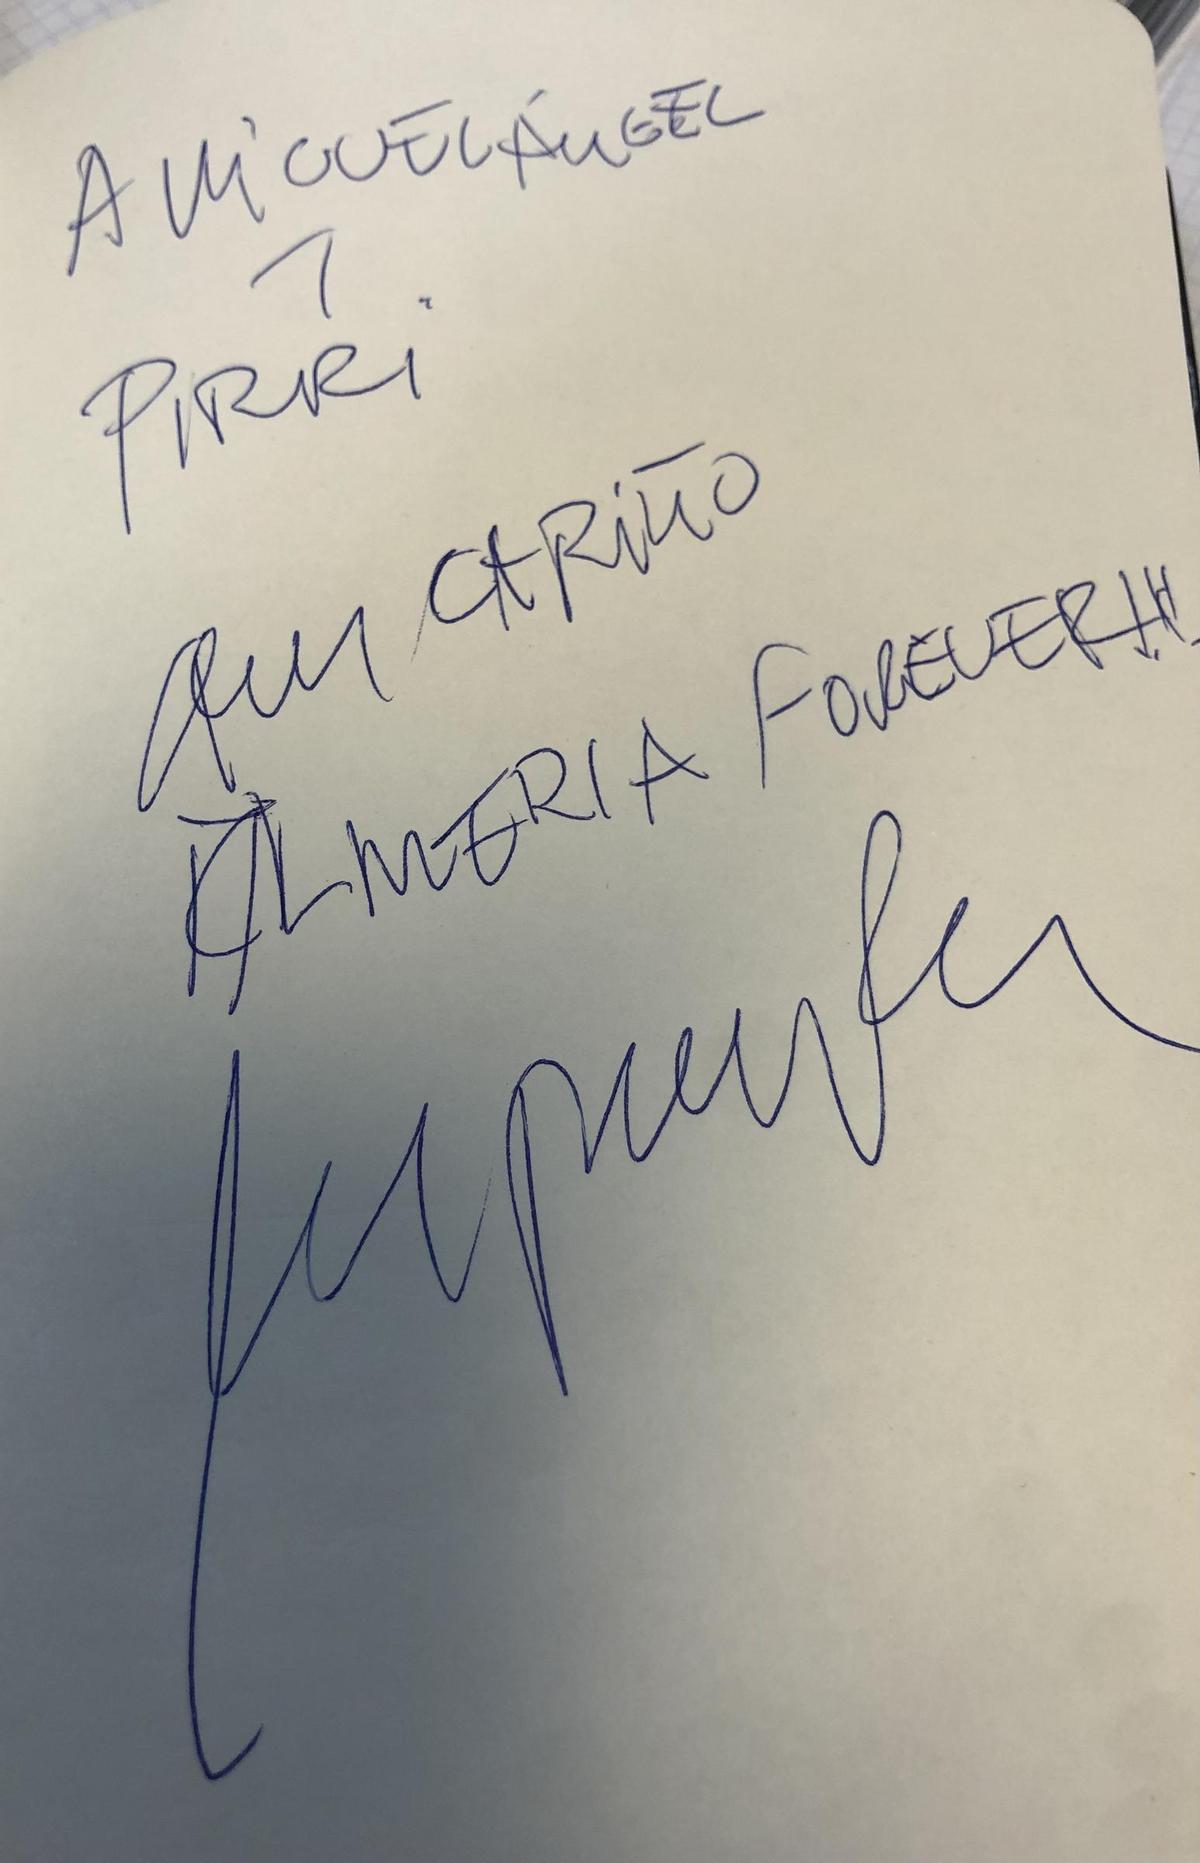 A MIGUEL ÁNGEL
Y
PIRRI
CON CARIÑO
ALMERIA FOREVER!!!